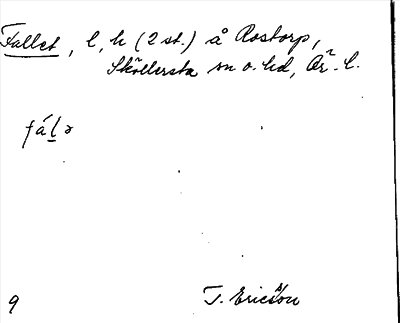 Fallet, l, h (2 st.) å Rostorp,
Sköllersta sn o. hd, Ör. l.
fáḻə
9
T. Ericsson